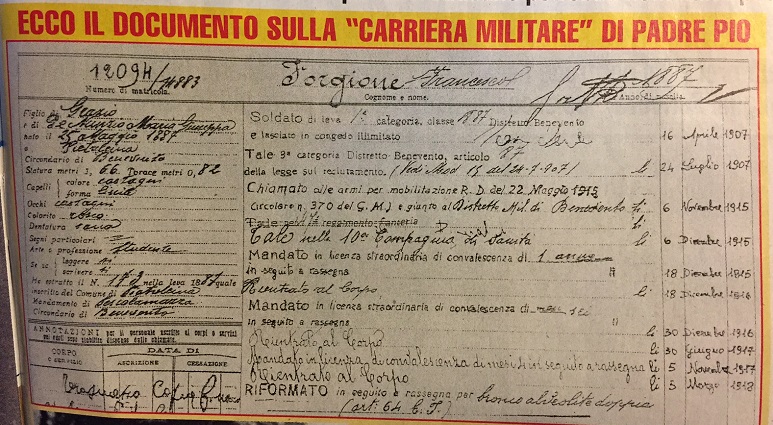 ECCO IL DOCUMENTO SULLA "CARRIERA MILITARE" DI PADRE PIO
12094/24883
Numero di matricola.
Forgione Francesco
Cognome e nome.
1887
Figlio di Grazio
e di De Nunzio Maria Giuseppa
nato il 25 Maggio 1887
a Pietrelcina
Circondario di Benevento
Statura metri 3, 66 Torace metri 0, 82
Capelli colore castagni
forma lisia
Occhi castagni
Colorito roseo
Dentatura sana
Segni particolari
Arte o professione studente
Se sa leggere si
scrivere si
Ha estratto il N. 173 nella leva 1887 quale
inscritto nel Comune di Pietrelcina
Mandamento di
Circondario di Benevento
ANNOTAZIONI
CORPO
DATA DI
ASCRIZIONE
CESSAZIONE
Soldato di leva 1ª categoria, classe 1887 Distretto Benevento
e lasciato in congedo illimitato 16 Aprile 1907
Tale 3ª categoria Distretto Benevento, articolo 87
della legge sul reclutamento. (Vedi Mod 15 del 24-7-907) li 24 Luglio 1907
Chiamato alle armi per mobilitazione R. D. del 22 Maggio 1915
Circolare n. 370 del G.M.) e giunto al Distretto Mil. di Benevento li 6 Novembre 1915
Tale nella 10ª Compagnia di Sanità li 6 Dicembre 1915
Mandato in licenza straordinaria di convalescenza di 1 anno
in seguito a rassegna 18 Dicembre 1915
Rientrato al Corpo 18 Dicembre 1916
Mandato in licenza straordinaria di convalescenza di mesi sei
in seguito a rassegna li 30 Dicembre 1916
Rientrato al Corpo li 30 Giugno 1917
Mandato in licenza di convalescenza di mesi 4 in seguito a rassegna li 5 Novembre 1917
Rientrato al Corpo li 5 Marzo 1918
RIFORMATO in seguito a rassegna per bronco alveolite doppia
(art. 64 E. I.)